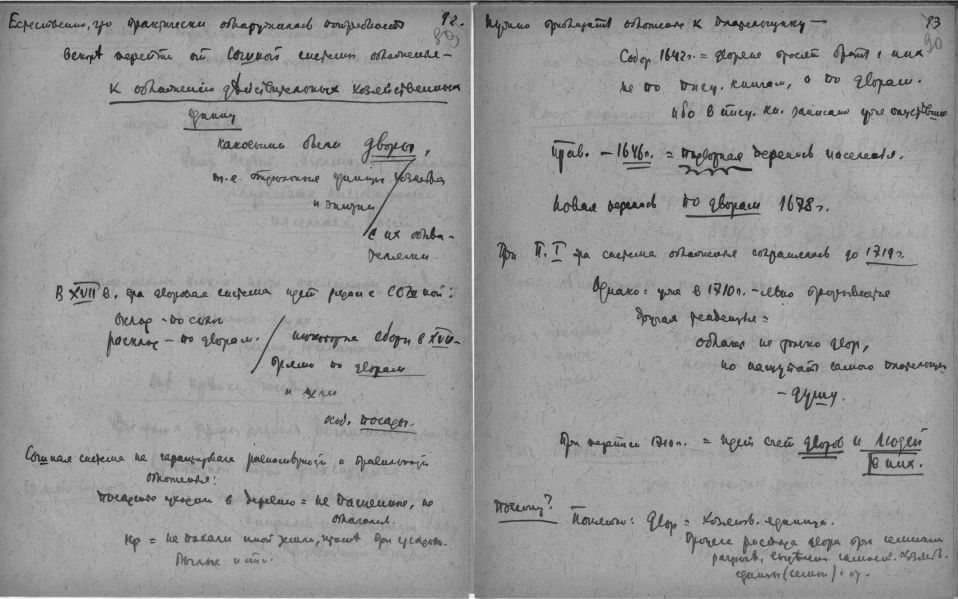 92.
Естественно, что практически обнаружилась потребность
вскоре перейти от сошной системы обложения –
к обложению действительных хозяйственных
единиц
каковыми были дворы,
т.е. отдельные единицы хозяйства
и жизни
с их обита-
телями.
В XVII в. эта дворовая система идет рядом с сошной:
оклад – по сохам
расклад – по дворам.
некоторые сборы в XVII –
прямо по дворам
и шли
особ. посады.
Сошная система не гарантировала равномерной и правильной
обложения:
Посадские уходили в деревню = не платили, но
Кр = не пахали иной земли, кроме при усадьб.
93
90
Нужно приблизить обложение к плательщику –
Собор 1642 г. = дворяне просят брать с них
не по писц. книгам, а по дворам.
ибо в писц. кн. записано уже опустевших
Прав. – 1646 г. = подворная перепись населения.
Новая перепись по дворам 1678 г.
При П. I эта система обложения сохранилась до 1719 г.
Однако: уже в 1710 г. – явно проскальзывает
другая тенденция =
облагать не только двор,
но нащупать самого плательщика
– душу.
При переписи 1710 г. = идет счет дворов и людей
в них.
Почему?
Понятно: Двор = хозяйств. единица.
Процесс распада двора при семейных
разделах, выделении самост. хозяйств.
единиц (семьи) и пр.